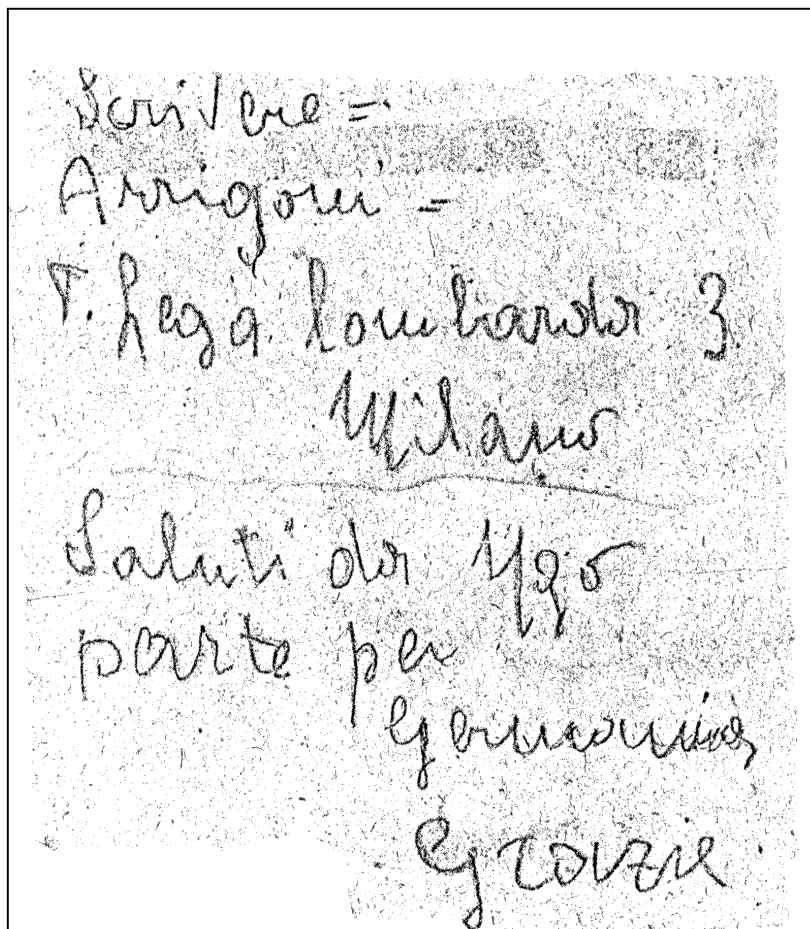 Scrivere =
Arrigoni =
P. Lega Lombarda 3
Milano
Saluti da Ugo
parte per
Germania
Grazie.